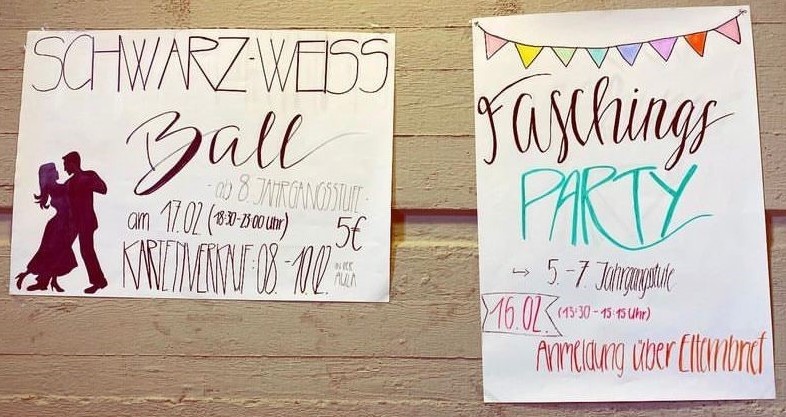 SCHWARZ-WEISS
Ball
- ab 8. JAHRGANGSSTUFE -
am 17.02. (18:30-23:00 Uhr)
5€
KARTENVERKAUF: 08. - 10.02.
IN DER
AULA
Faschings
PARTY
→ 5. - 7. Jahrgangstufe
16.02. (13:30 - 15:15 Uhr)
Anmeldung über Elternbrief